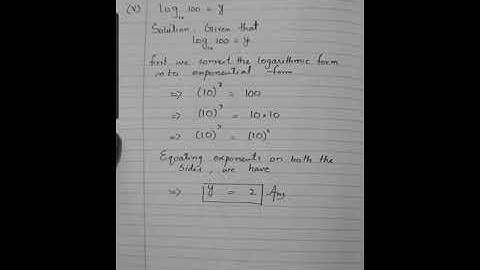 (V) log₁₀ 100 = y
Solution: Given that
log₁₀ 100 = y
first we convert the logarithmic form
into exponential form
=> (10)^y = 100
=> (10)^y = 10×10
=> (10)^y = (10)²
Equating exponents on both the
sides, we have
=> y = 2 Ans